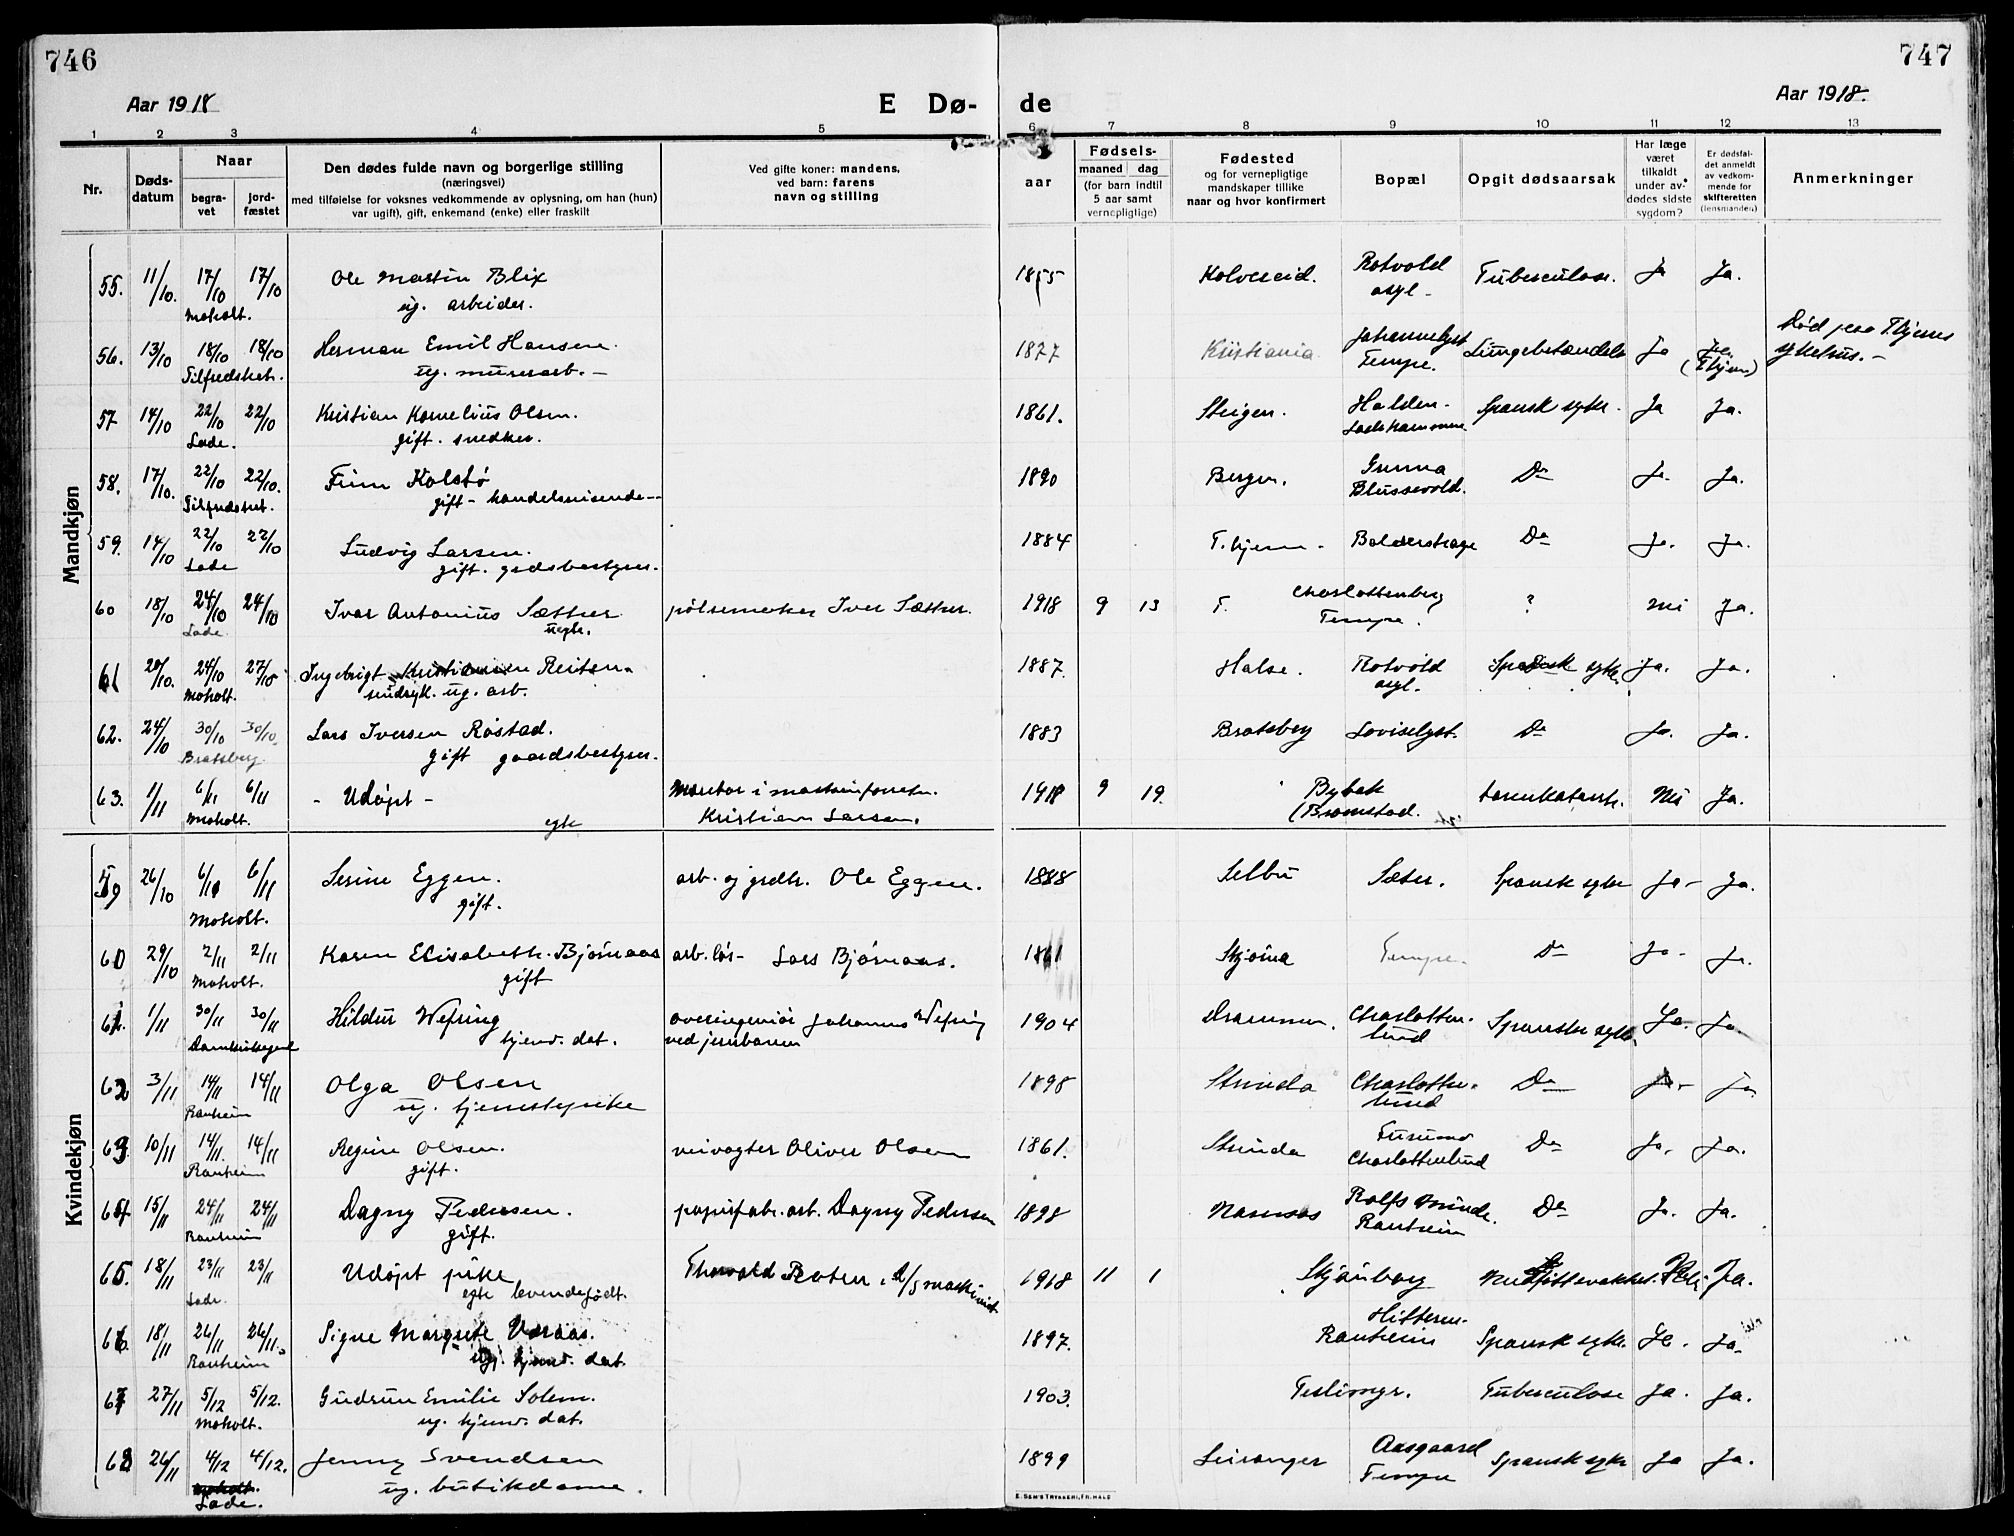 746
747
Aar 1918
E Dø-
de
Aar 1918.
1 2 3 4 5 6 7 8 9 10 11 12 13
Nr.
Døds-
datum
Naar
begra-
vet
jord-
fæstet
Den dødes fulde navn og borgerlige stilling
(næringsvei)
med tilføielse for voksnes vedkommende av oplysning, om han (hun)
var ugift), gift, enkemand (enke) eller fraskilt
Ved gifte koner: mandens,
ved barn: farens
navn og stilling
aar
Fødsels-
maaned dag
(for barn indtil
5 aar samt
vernepligtige)
Fødested
og for vernepligtige
mandskaper tillike
naar og hvor konfirmert
Bopæl
Opgit dødsaarsak
Har læge
været
tilkaldt
under av-
dødes sidste
sygdom?
Er dødsfal-
det anmeldt
av vedkom-
mende for
skifteretten
(lensmanden)
Anmerkninger
Mandkjøn
55. 11/10. 17/10 17/10 Ole Martin Blix 1855 Kolvereid. Rotvold Tuberculose. Ja Ja.
Moholt. ug. arbeider. asyl-
56. 13/10 18/10 18/10 Herman Emil Hansen 1877 Kristiania Johannelyst Lungebetændelse Ja Død paa Thjems
Tilfredshet. ug. murerarb.- Tempe. (Thjem) sykehus.-
57 14/10 22/10 22/10 Kristian Kornelius Olsen. 1861. Steigen. Halden- Spansk syke. Ja Ja.
Lade. gift. snedker. Ladehammeren
58. 17/10. 22/10 22/10. Finn Kolstø 1890 Bergen. Grunna Do Ja. Ja.
Tilfredshet. gift - handelsreisende-- Blussevold.
59. 14/10 22/10 22/10 Ludvig Larsen. 1884 T.hjem. Baldershage Do Ja. Ja.
Lade gift. grdsbestyrer.
60 18/10 24/10 24/10 Ivar Antonius Sæther pølsemaker Iver Sæther. 1918 9 13 T. Charlottenberg ? Nei Ja.
Lade. uegte. Tempe.
61 20/10. 24/10 27/10 Ingebrigt Kristiansen Reiten. 1887. Halse. Rotvold Spansk syke. Ja. Ja.
Moholt. sindsyk. ug. arb. asyl.
62. 24/10 30/10 30/10. Lars Iversen Røstad. 1883 Bratsberg Loviselyst. Do Ja. Ja.
Bratsberg. gift gaardsbestyrer.
63. 1/11 6/11 6/11 - Udøpt - Montør i maskinforretn. 1918 9 19. Bybæk Nei Ja.
Moholt. egte Kristian Larsen. (Bromstad.
Kvindekjøn
59 26/10 6/11 6/11 Serine Eggen. arb. og grdbr. Ole Eggen. 1888 Selbu Sæter. Spansk syke Ja- Ja.
Moholt. gift.
60 29/10 2/11 2/11 Karen Elisabeth Bjørnaas arb. lør- Lars Bjørnaas. 1861 Tempe. Do Ja. Ja.
Moholt. gift
61. 1/11 30/11 30/11 Hildur Wefring overingeniør Johannes Wefring 1904 Drammen. Charlotten- Spanske syke. Ja. Ja.
hjemv. dat. ved jernbanen lund
62 3/11 14/11 14/11 Olga Olsen 1898 Strinda Charlotten- Do Ja- Ja
Ranheim ug. tjenestepike lund
63. 10/11 14/11. 14/11 Regine Olsen. veivogter Oliver Olsen 1861. Strinda Furumo Do Ja. Ja.
Ranheim gift. Charlottenlund
64 15/11 24/11 24/11 Dagny Pedersen. papirfabr.arb. Dagny Pedersen 1898 Namsos Rolfs minde. Do Ja. Ja.
Ranheim gift. Ranheim
65. 18/11 23/11 23/11 Udøpt pike Thorvald 1918 11 1 Skjønborg Ja.
Lade. egte levendefødt.
66. 18/11 26/11 26/11. Signe Margrete 1897. Hitteren. Spansk syke. Ja. Ja.
Ranheim ug. hjemv. dat. Ranheim
67 27/11 5/12 5/12. Gudrun Emilie Solem. 1903. Teslimyr. Tuberculose Ja. Ja.
Moholt. ug. hjemv. dat.
68 26/11 4/12 4/12. Jenny Svendsen 1899 Leiranger Aasgaard Spansk syke Ja Ja.
Moholt. ug. butikdame. Tempe
Lade.
E. SEM'S TRYKKERI, FR.HALD